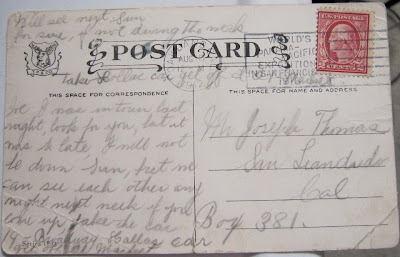 Will see next Sun
for sure, if not during the week
POST CARD
WORLD'S
PANAMA PACIFIC
EXPOSITION
IN SAN FRANCISCO
AUG
U.S. POSTAGE
Take Hollac car get off at
Market
THIS SPACE FOR CORRESPONDENCE
THIS SPACE FOR NAME AND ADDRESS
Joe I was in town last
night, look for you, but it
was to late I will not
be down Sun, but we
can see each other any
night next week if you
come up take the car
car
Mr Joseph Thomas
San Leandro
Cal
Box 381.